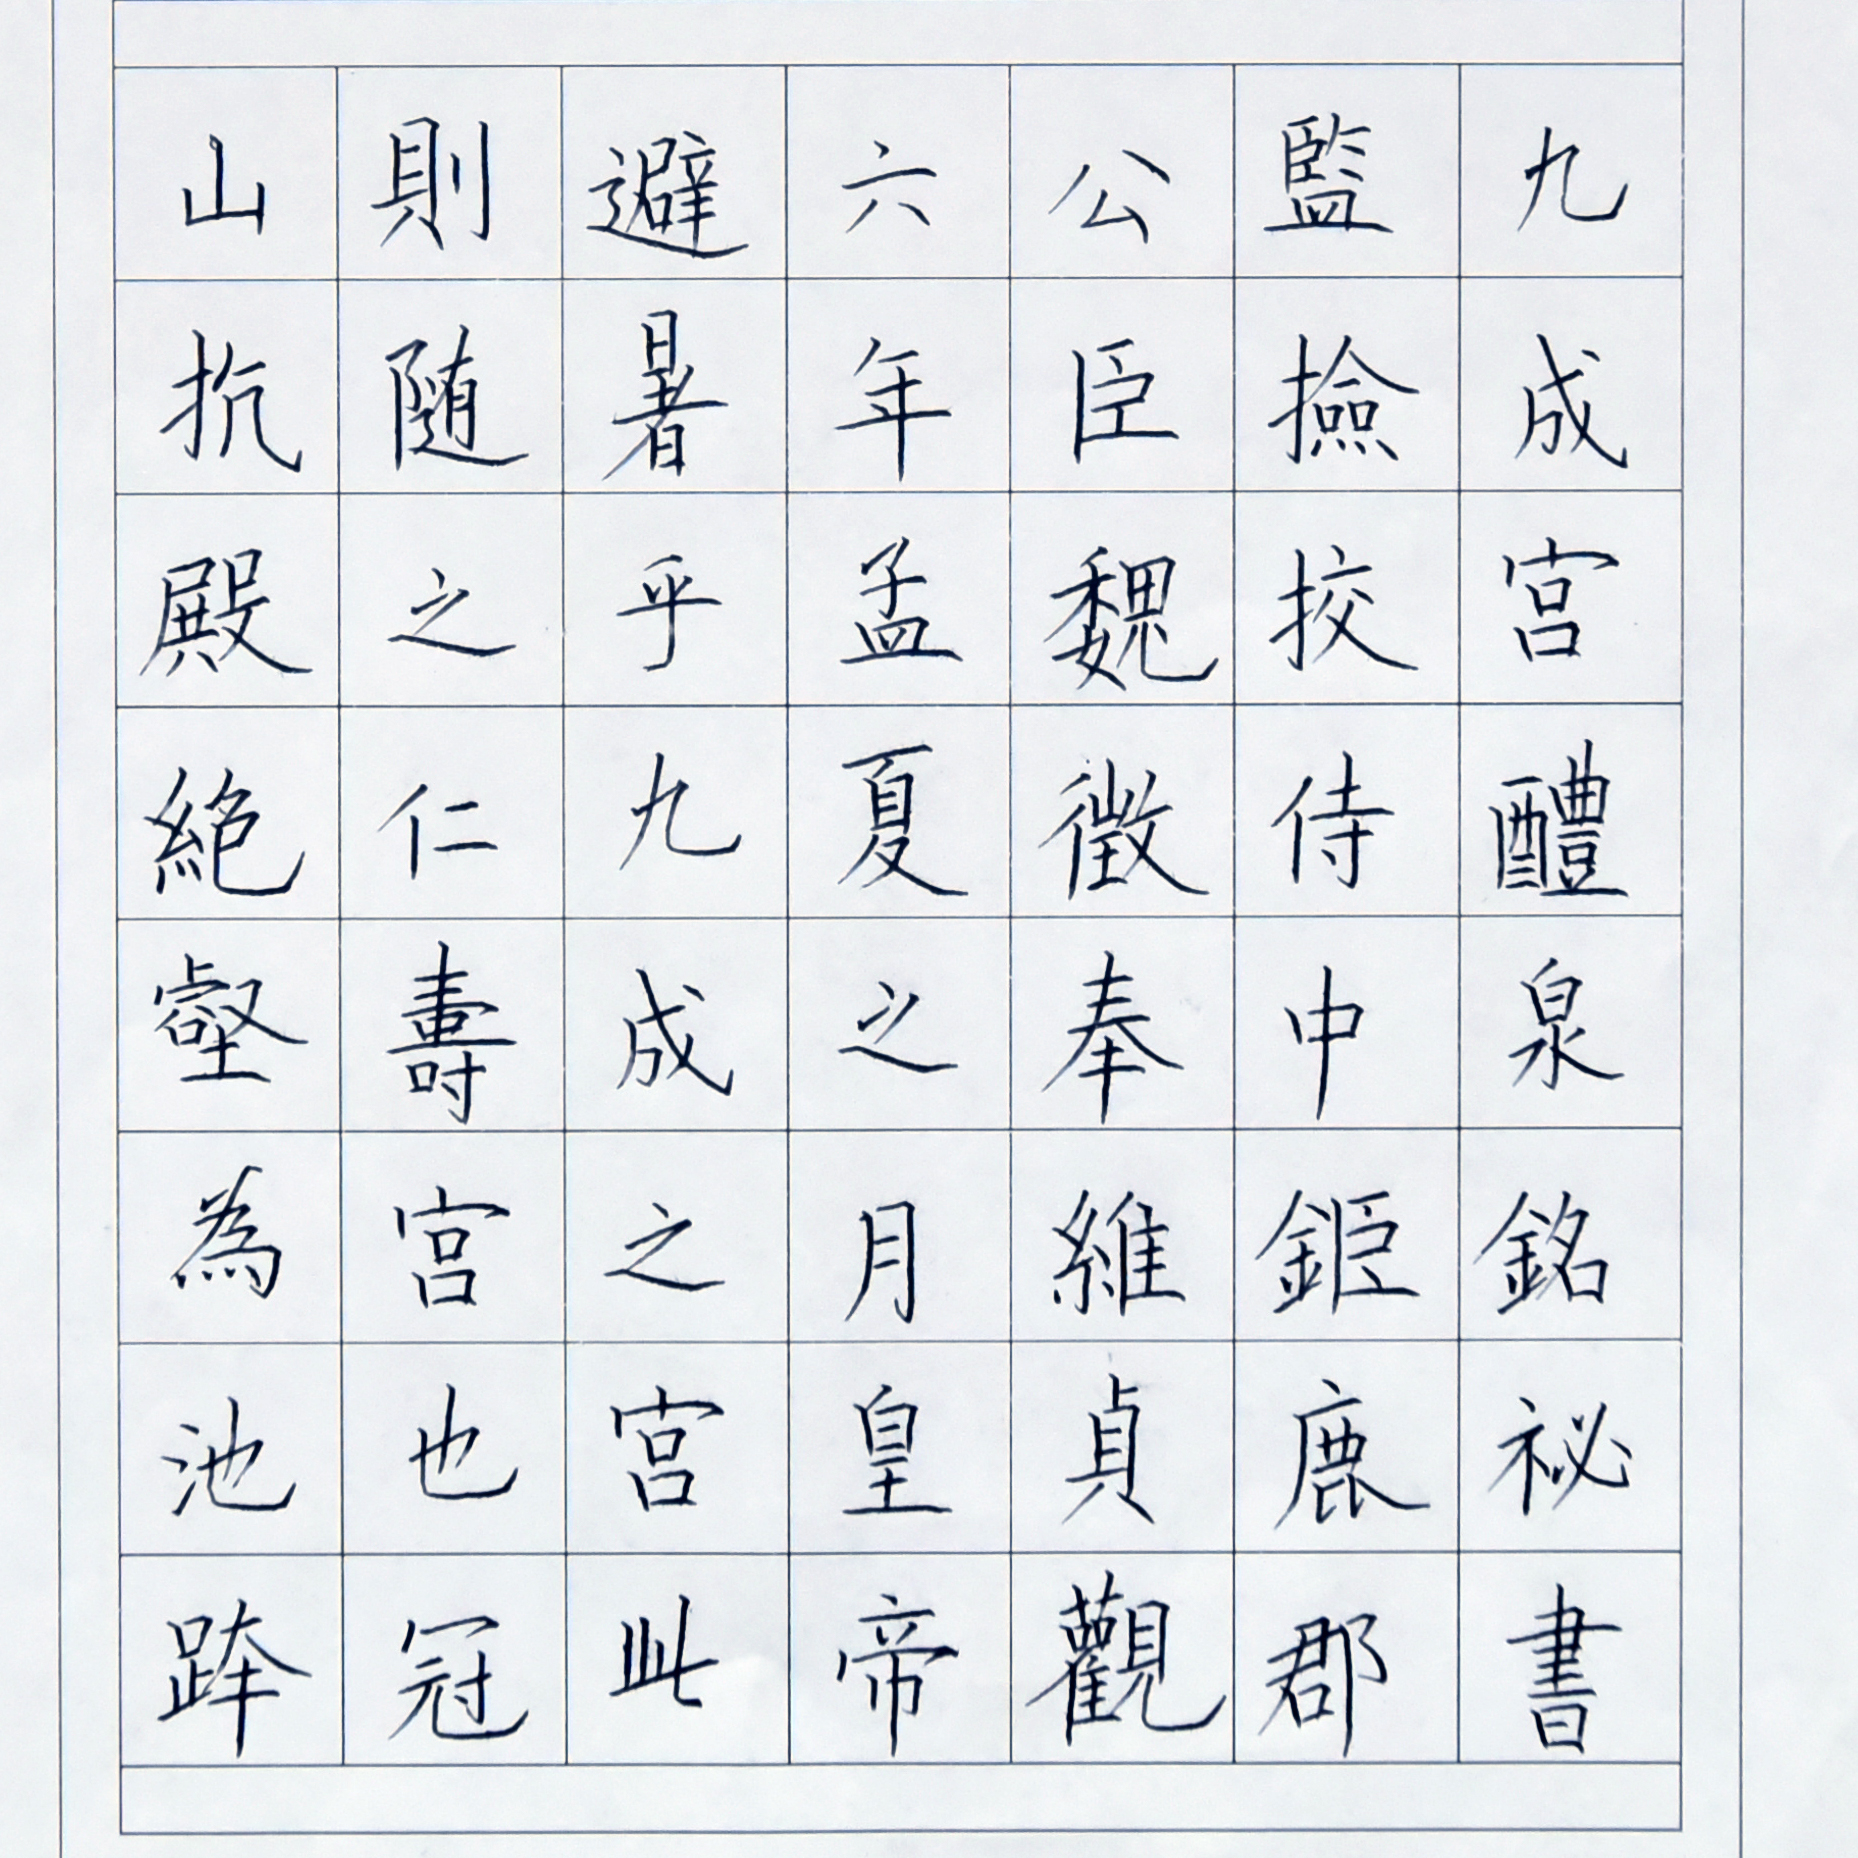 九成宮醴泉銘祕書
監撿挍侍中鉅鹿郡
公臣魏徵奉維貞觀
六年孟夏之月皇帝
避暑乎九成之宮此
則随之仁壽宮也冠
山抗殿絶壑為池跨